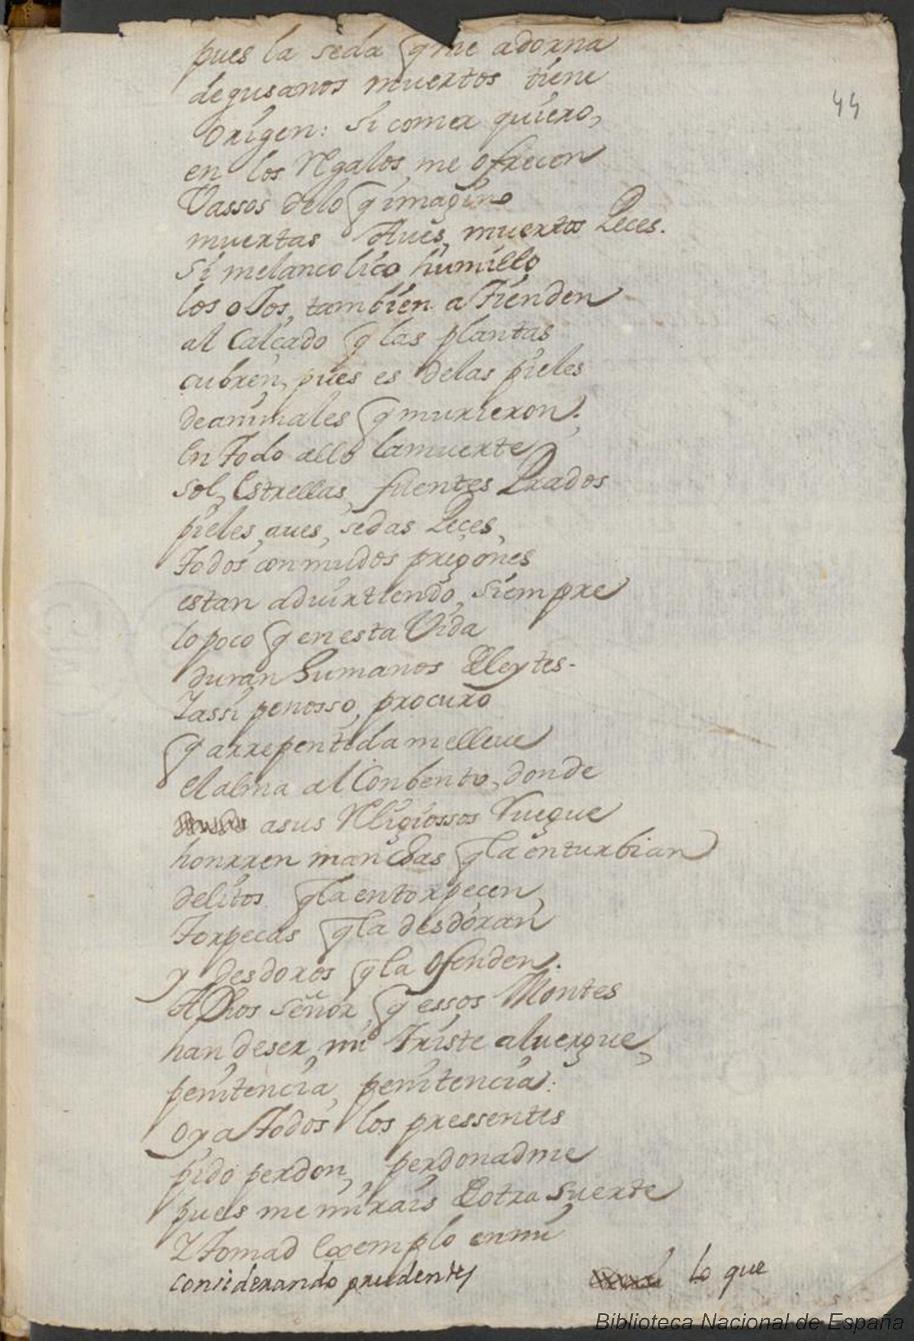 44
pues la seda q me adorna
de gusanos muertos tiene
origen: si comer quiero,
en los Regalos me ofrecen
Vassos delo q imagino
muertas Aues, muertos Peces.
Si melancolico humillo
los oJos, tambien atienden
al Calçado q las plantas
cubren, pues es delas pieles
de animales q murieron.
En todo allo lamuerte
sol, Estrellas, fuentes Prados
pieles, aues, sedas Peces,
todos con mudos pregones
estan aduirtiendo, siempre
lo poco q en esta Vida
duran humanos Deleytes.
Y assi penosso, procuro
q arrepentida me lleue
el alma al Conbento, donde
asus Religiossos Ruegue
honrren manchas q la enturbian
delitos q la entorpecen,
torpecas q la desdoran
y desdoros q la ofenden.
A Dios señor, q essos Montes
han deser mi triste aluergue,
penitencia, penitencia:
oy a todos los pressentes
pido perdon, perdonadme
pues me mirais de otra suerte
Y tomad exemplo en mi
considerando prudentes
lo que
Biblioteca Nacional de España